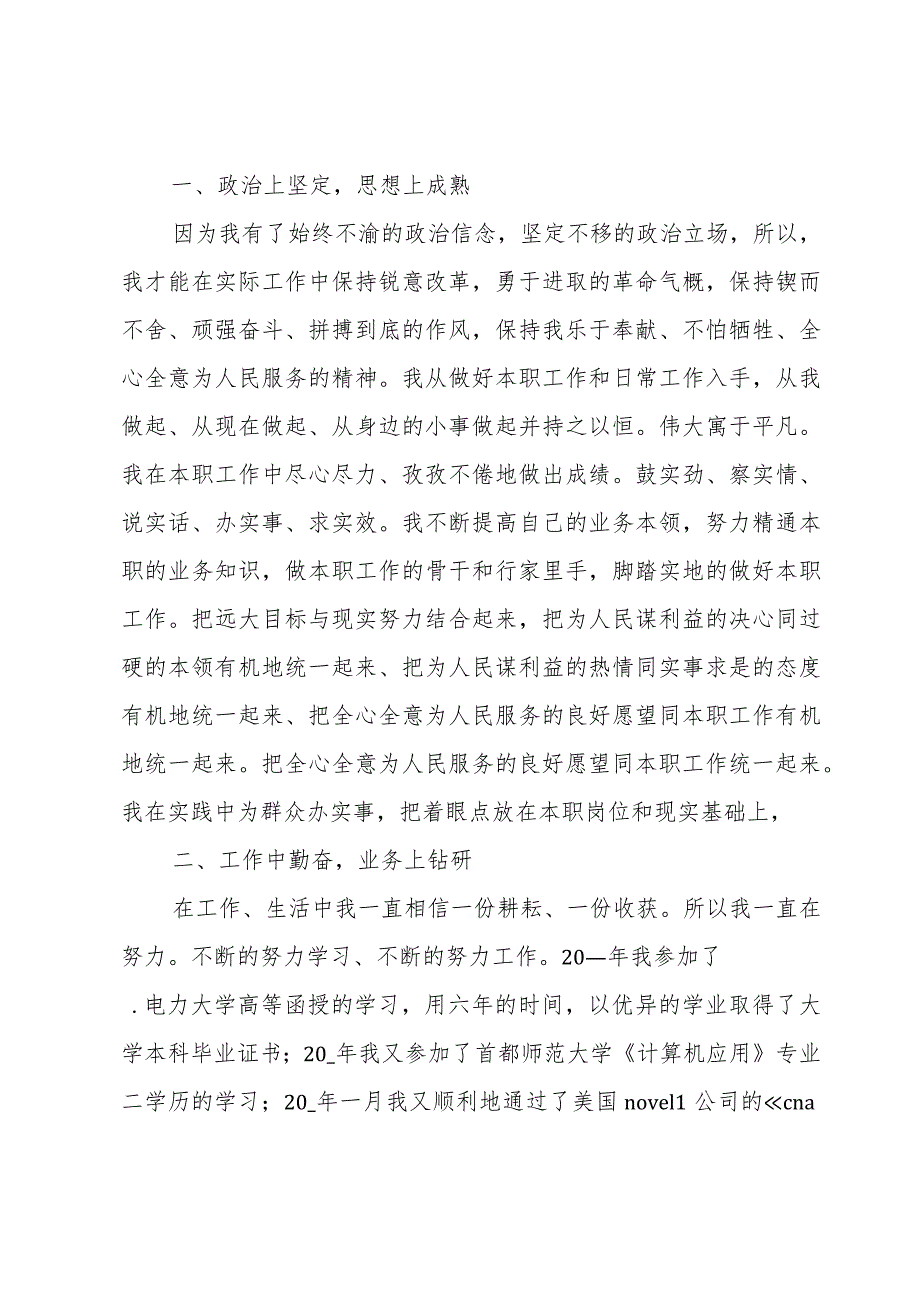 一、政治上坚定，思想上成熟
因为我有了始终不渝的政治信念，坚定不移的政治立场，所以，
我才能在实际工作中保持锐意改革，勇于进取的革命气概，保持锲而
不舍、顽强奋斗、拼搏到底的作风，保持我乐于奉献、不怕牺牲、全
心全意为人民服务的精神。我从做好本职工作和日常工作入手，从我
做起、从现在做起、从身边的小事做起并持之以恒。伟大寓于平凡。
我在本职工作中尽心尽力、孜孜不倦地做出成绩。鼓实劲、察实情、
说实话、办实事、求实效。我不断提高自己的业务本领，努力精通本
职的业务知识，做本职工作的骨干和行家里手，脚踏实地的做好本职
工作。把远大目标与现实努力结合起来，把为人民谋利益的决心同过
硬的本领有机地统一起来、把为人民谋利益的热情同实事求是的态度
有机地统一起来、把全心全意为人民服务的良好愿望同本职工作有机
地统一起来。把全心全意为人民服务的良好愿望同本职工作统一起来。
我在实践中为群众办实事，把着眼点放在本职岗位和现实基础上，
二、工作中勤奋，业务上钻研
在工作、生活中我一直相信一份耕耘、一份收获。所以我一直在
努力。不断的努力学习、不断的努力工作。20—年我参加了
.电力大学高等函授的学习，用六年的时间，以优异的学业取得了大
学本科毕业证书；20_年我又参加了首都师范大学《计算机应用》专业
二学历的学习；20_年一月我又顺利地通过了美国 novel1 公司的≪cna